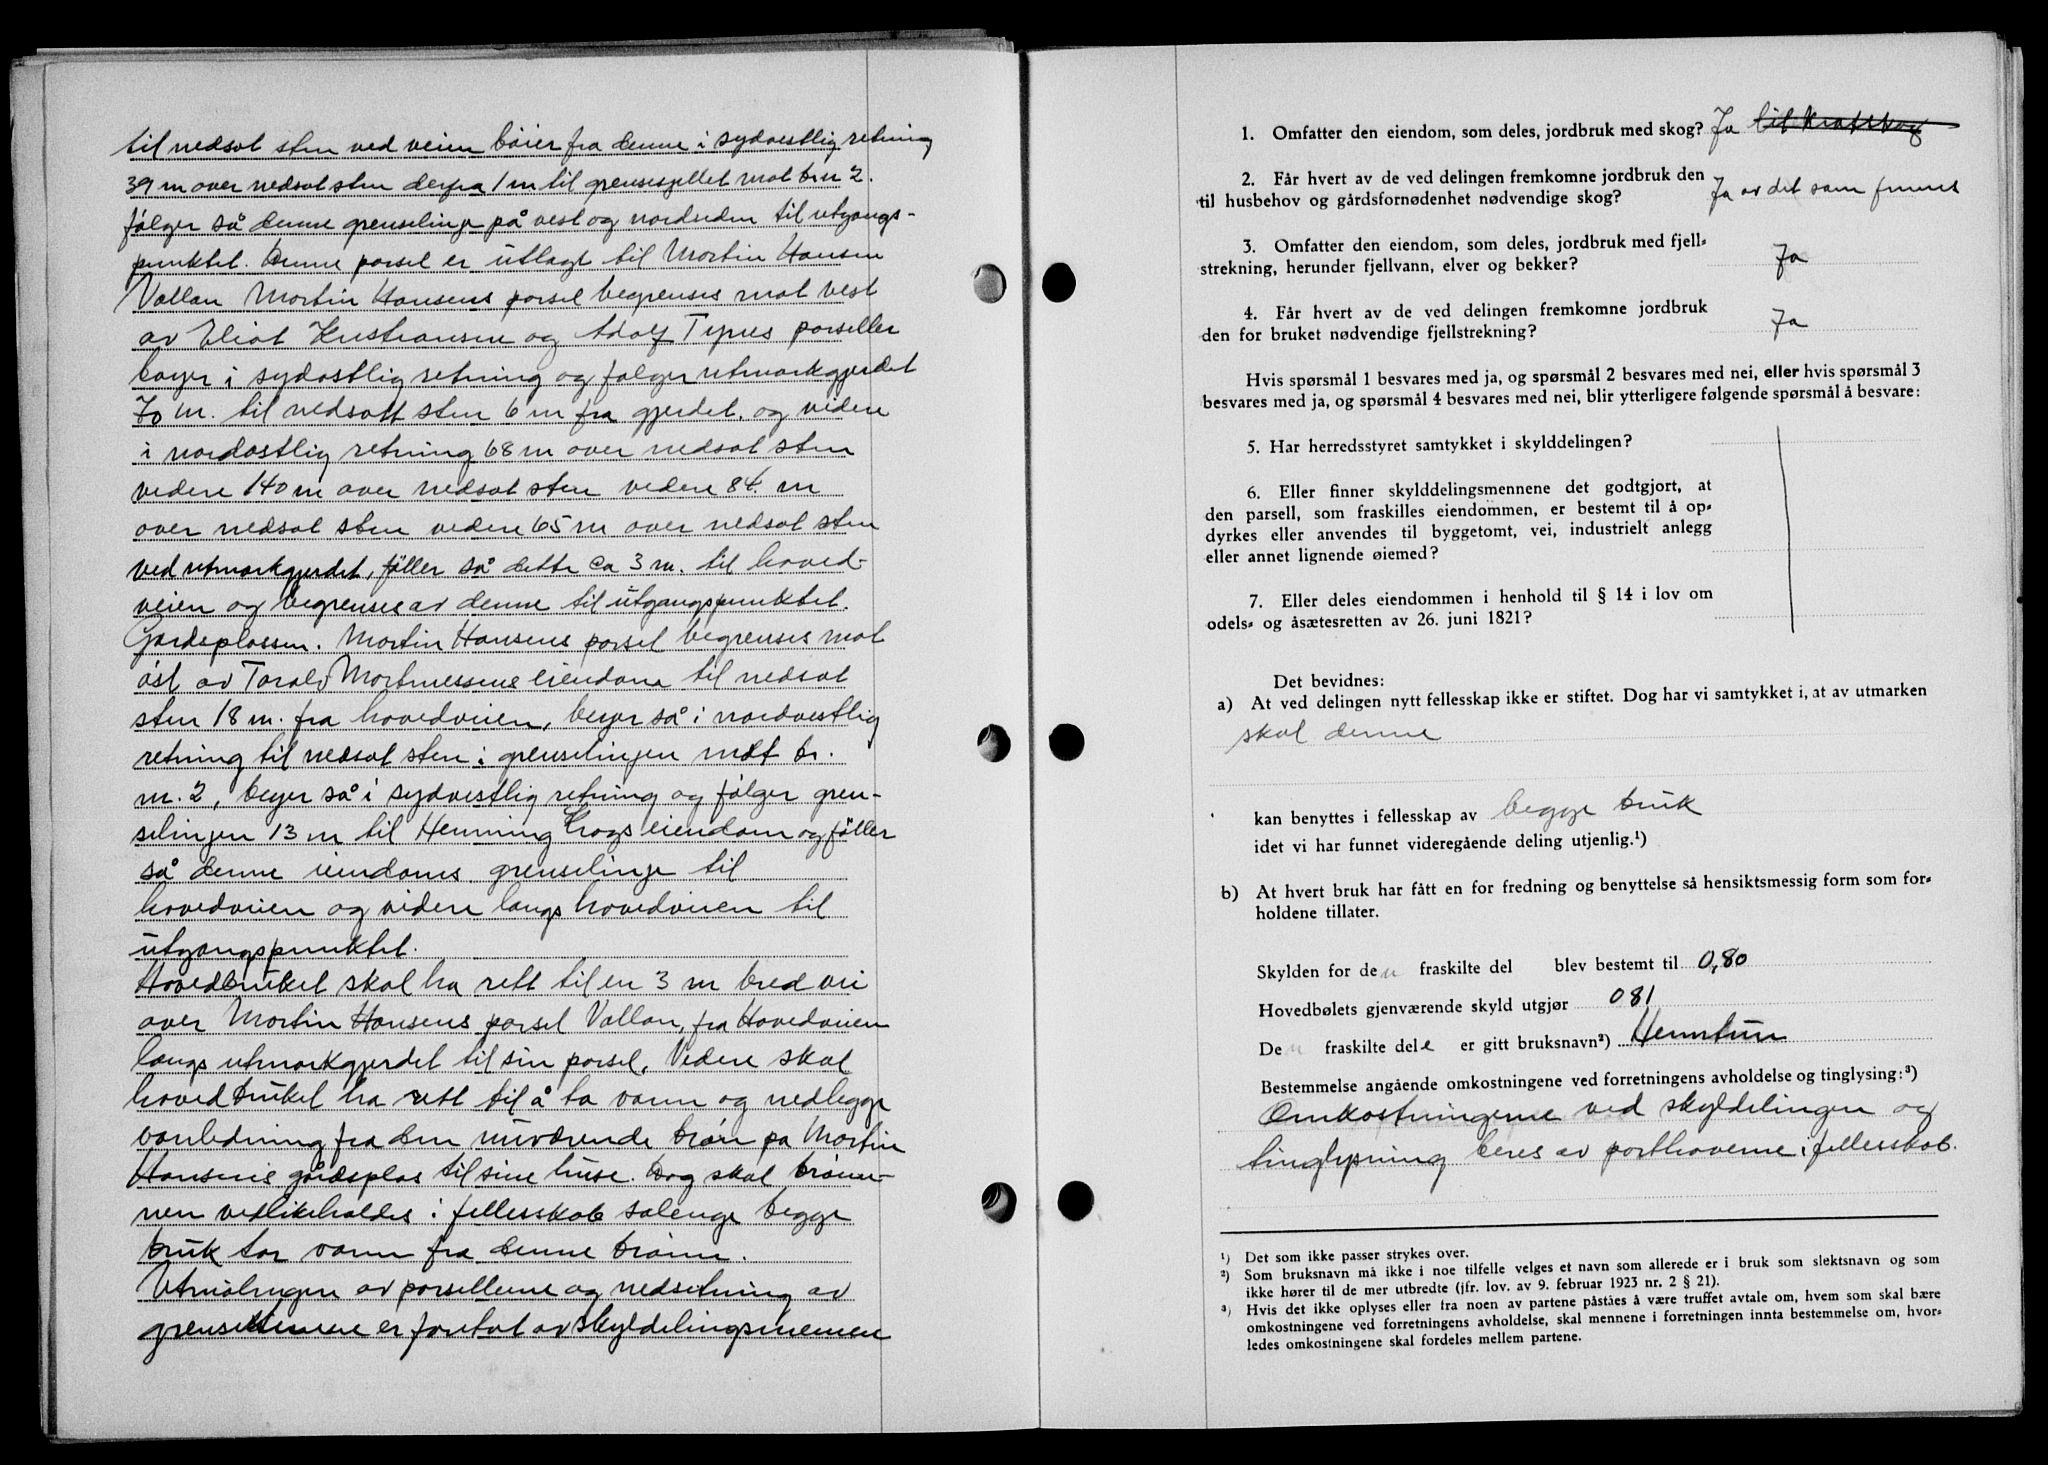 til nedsat sten ved veien bøier fra denne i sydvestlig retning
39 m over nedsat sten derfra 1 m til grensesjellet mot br.n 2.
følger så denne grenselinje på vest og nordsiden til utgangs-
punktet. Denne parsel er utlagt til Martin Hansen
Vollan Martin Hansens parsel begrenses mot vest
av Eliot Kristiansen og Adolf Tynes parseller
bøyer i sydøstlig retning og følger utmarkgjerdet
70 m. til nedsatt sten 6 m fra gjerdet. og videre
i nordøstlig retning 68 m over nedsat sten
videre 140 m over nedsat sten videre 84. m
over nedsat sten videre 65 m over nedsat sten
ved utmarkgjerdet, føller så dette ca 3 m. til hoved-
veien og begrenses av denne til utgangspunktet.
Gårdsplassen. Martin Hansens parsel begrenses mot
øst av Torolv Mortinussens eiendom til nedsat
sten 18 m. fra hovedveien, bøyer så i nordvestlig
retning til nedsat sten i grenselinjen mot br.
nr. 2, bøyer så i sydvestlig retning og følger gren-
selinjen 13 m til Henning Krogs eiendom og føller
så denne eiendoms grenselinje til
hovedveien og videre langs hovedveien til
utgangspunktet.
Hovedbruket skal ha rett til en 3 m bred vei
over Martin Hansens parsel Vollan, fra Hovedveien
langs utmarkgjerdet til sin parsel. Videre skal
hovedbruket ha rett til å ta vann og nedlegge
vanledning fra den nuværende brøn på Martin
Hansens gårdsplas til sine huse. Dog skal brøn-
nen vedlikeholdes i fellesskab så lenge begge
bruk tar vann fra denne brønn.
Utmålingen av parsellerne og nedsetning av
grensestenene er foretat av skyldelingsmennene
1. Omfatter den eiendom, som deles, jordbruk med skog? Ja litt kratskog
2. Får hvert av de ved delingen fremkomne jordbruk den
til husbehov og gårdsfornødenhet nødvendige skog? Ja av det som finnes
3. Omfatter den eiendom, som deles, jordbruk med fjell-
strekning, herunder fjellvann, elver og bekker? Ja
4. Får hvert av de ved delingen fremkomne jordbruk
den for bruket nødvendige fjellstrekning? Ja
Hvis spørsmål 1 besvares med ja, og spørsmål 2 besvares med nei, eller hvis spørsmål 3
besvares med ja, og spørsmål 4 besvares med nei, blir ytterligere følgende spørsmål å besvare:
5. Har herredsstyret samtykket i skylddelingen?
6. Eller finner skylddelingsmennene det godtgjort, at
den parsell, som fraskilles eiendommen, er bestemt til å op-
dyrkes eller anvendes til byggetomt, vei, industrielt anlegg
eller annet lignende øiemed?
7. Eller deles eiendommen i henhold til § 14 i lov om
odels- og åsætesretten av 26. juni 1821?
Det bevidnes:
a) At ved delingen nytt fellesskap ikke er stiftet. Dog har vi samtykket i, at av utmarken
skal denne
kan benyttes i fellesskap av begge bruk
idet vi har funnet videregående deling utjenlig.¹)
b) At hvert bruk har fått en for fredning og benyttelse så hensiktsmessig form som for-
holdene tillater.
Skylden for den fraskilte del blev bestemt til 0,80
Hovedbølets gjenværende skyld utgjør 081
Den fraskilte dele er gitt bruksnavn²) Hemtun
Bestemmelse angående omkostningene ved forretningens avholdelse og tinglysing:³)
Omkostningene ved skyldelingen og
tinglysning beres av parthaverne i fellesskab.
¹) Det som ikke passer strykes over.
²) Som bruksnavn må ikke i noe tilfelle velges et navn som allerede er i bruk som slektsnavn og som
ikke hører til de mer utbredte (jfr. lov. av 9. februar 1923 nr. 2 § 21).
³) Hvis det ikke oplyses eller fra noen av partene påståes å være truffet avtale om, hvem som skal bære
omkostningene ved forretningens avholdelse, skal mennene i forretningen innta bestemmelse om, hvor-
ledes omkostningene skal fordeles mellem partene.